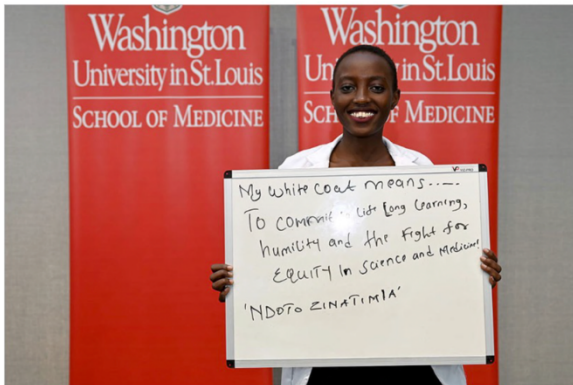 Washington
University in St. Louis
SCHOOL OF MEDICINE
Washington
Un in St. Louis
SCH OF MEDICINE
My white coat means.....
To commit Life Long Learning,
humility and the Fight for
EQUITY In Science and Medicine!
'NDOTO ZINATIMIA'